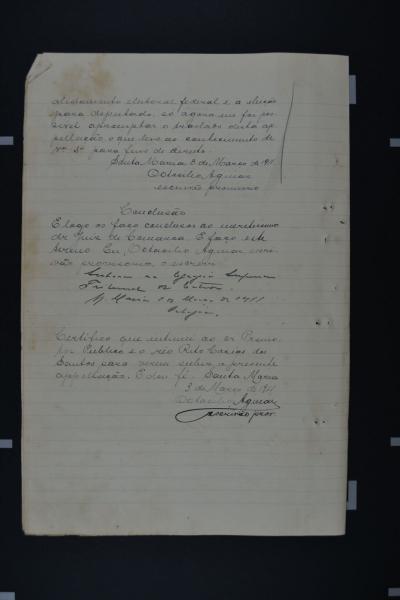 alistamento eleitoral federal e a eleição
para deputado, só agora me foi pos-
sivel apromptar o traslado desta ap-
pellação o que levo ao conhecimento de
Vª Sª para fins de direito.
Santa Maria 3 de Março de 1911
Octacilio Aguiar
escrivão provisorio
Conclusão
E logo os faço conclusos ao meretissimo
dr Juiz de Comarca. E faço este
termo. Eu, Octacilio Aguiar escri-
vão provisorio, o escrevi.
Subam ao Egregio Superior
Tribunal do Estado.
S. Maria 3 de Março de 1911
Certifico que intimei ao dr Promo-
tor Publico e o réo Rito Carlos dos
Santos para verem subir a presente
appellação. E dou fé. Santa Maria
3 de Março de 1911
Octacilio Aguiar
escrivão prov.